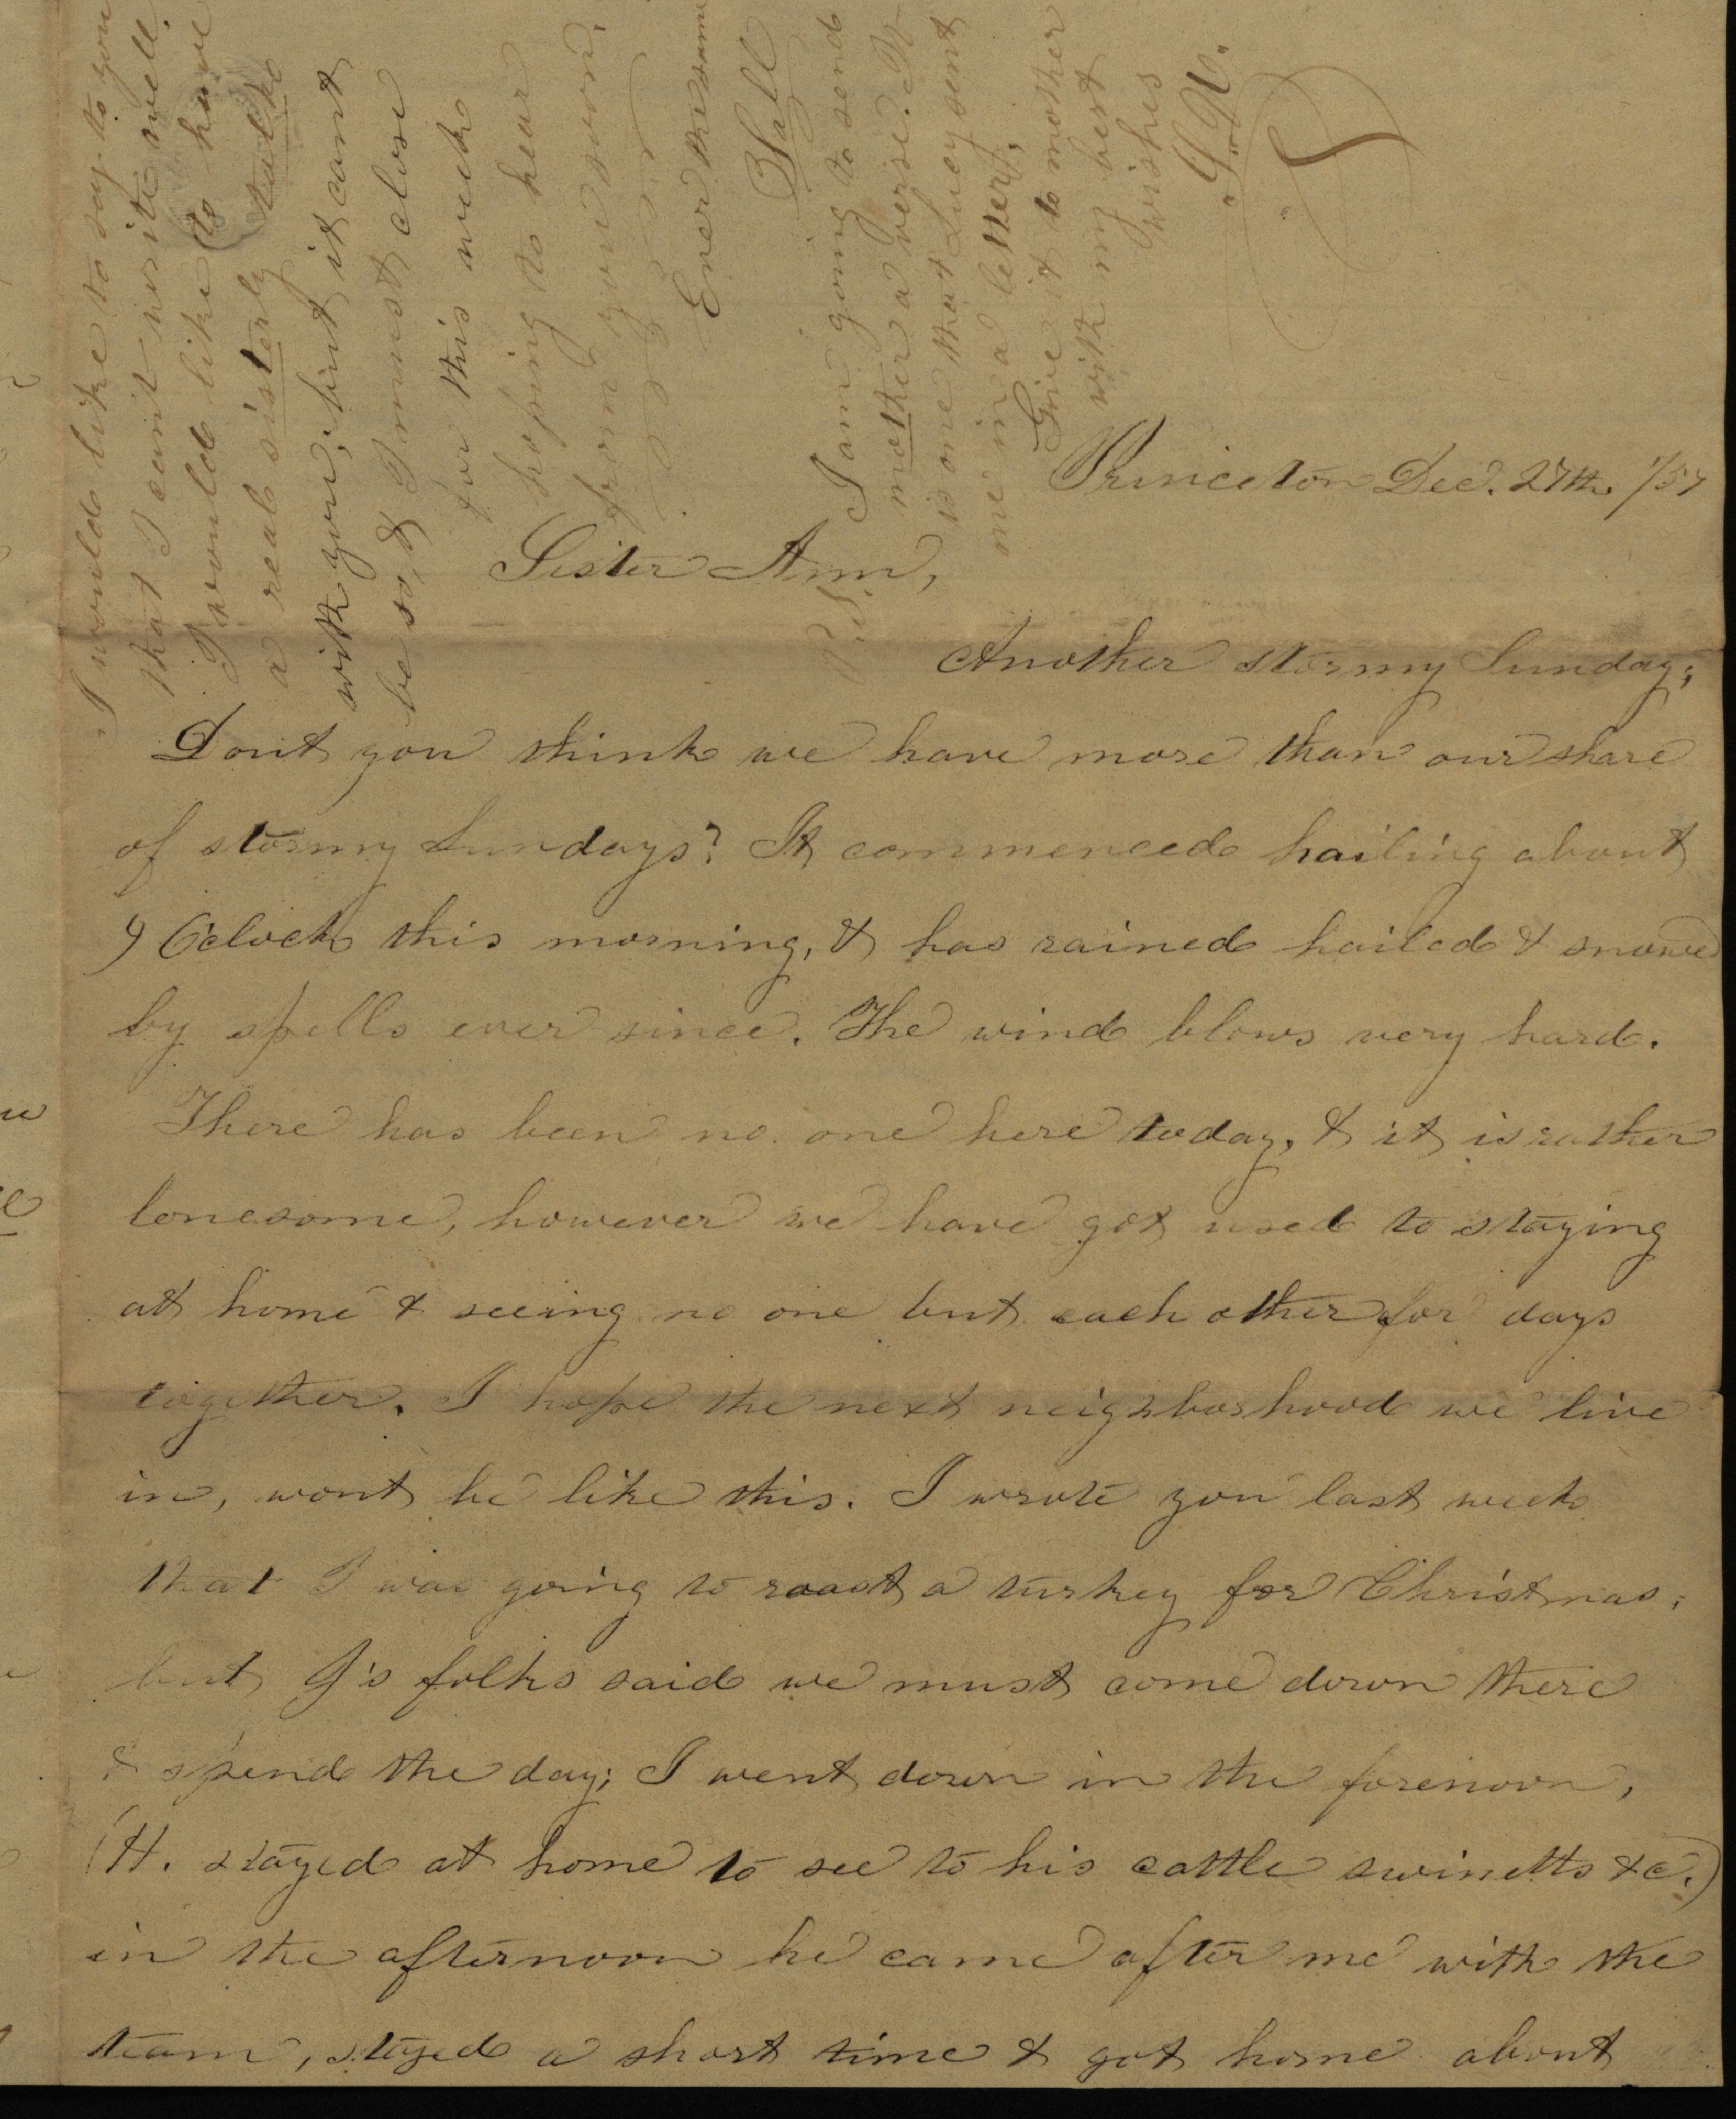 Princeton Dec. 27th. /57
Sister Ann,
Another stormy Sunday;
Dont you think we have more than our share
of stormy Sundays? It commenced hailing about
9 Oclock this morning, & has rained hailed & snowed
by spells ever since. The wind blows very hard.
There has been no one here today, & it is rather
lonesome, however we have got used to staying
at home & seeing no one but each other for days
together. I hope the next neighborhood we live
in, wont be like this. I wrote you last week
that I was going to roast a turkey for Christmas,
but J's folks said we must come down there
& spend the day; I went down in the forenoon,
(H. stayed at home to see to his cattle swinetts &c.)
in the afternoon he came after me with the
team, stayed a short time & got home about
I would like to say to you
that I cant write well.
I would like to have
a real sisterly talk
with you, but it cant
be so, & I must close
for this week
hoping to hear
from you soon.
Ever the same
P.S. I am going to send
mother a verse. It
is one that Lucy sent
me in a letter.
Give it to mother
with my best
wishes